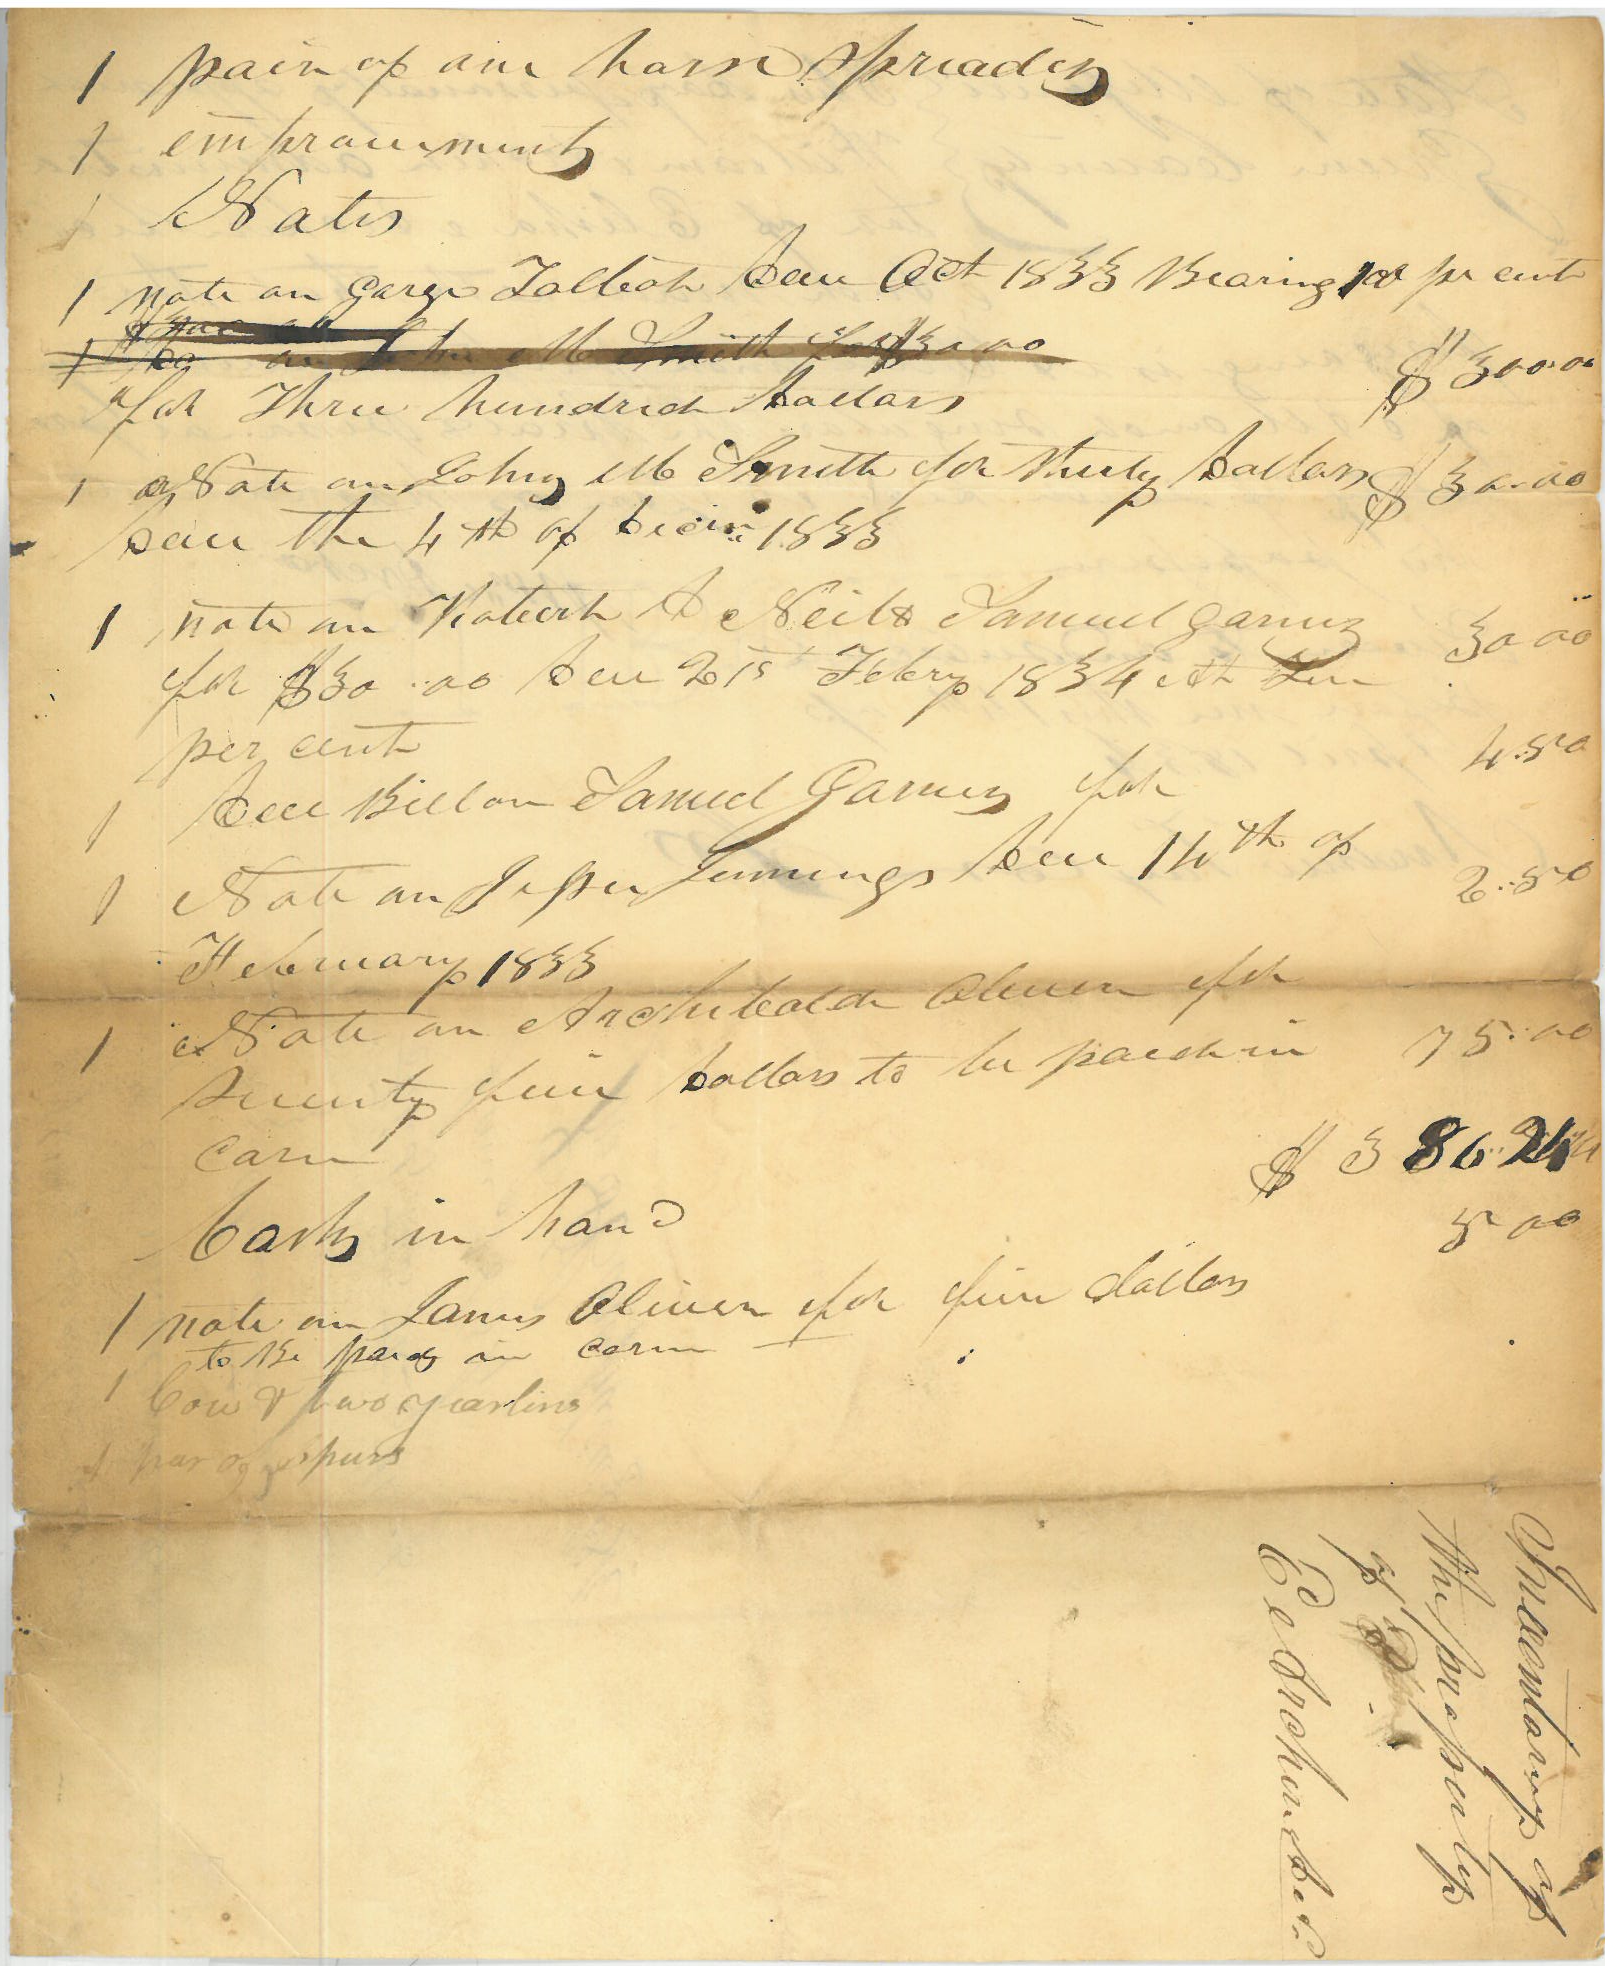 1 pair of one horse spreads
1 improvements
1 Notes
1 note on Talbot Due Oct 1833 Bearing 10 pr cent
1 Do on John M Smith for $30 00
for Three hundred Dollars $300.00
1 Note on John M Smith for thirty Dollars $30.00
Due the 4th of 1833
1 note on Robert S Neil & Samuel Garner 30 00
for $30.00 Due 21s Febry 1834 At Ten
per cent
1 Due Bill on Samuel Garner for 4.50
1 Note on Jesper Jennings Due 14th of 2.50
February 1833
1 Note on Archibald Oliver for
seventy five Dollars to be paid in 75.00
corn
$ 386 24
Cash in hand 5 00
1 note on James Oliver for five dollars
to Be paid in corn
1 Cow & two yearlins
1 par of spurs
Inventory of
the property
of
E